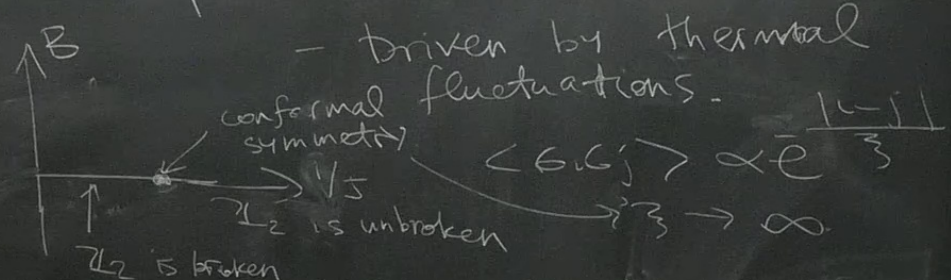 B
- Driven by thermal
fluctuations.
conformal
symmetry
<σiσj> ∝ e^{-|i-j|/ξ}
1/J
ℤ₂ is unbroken
ξ → ∞
ℤ₂ is broken